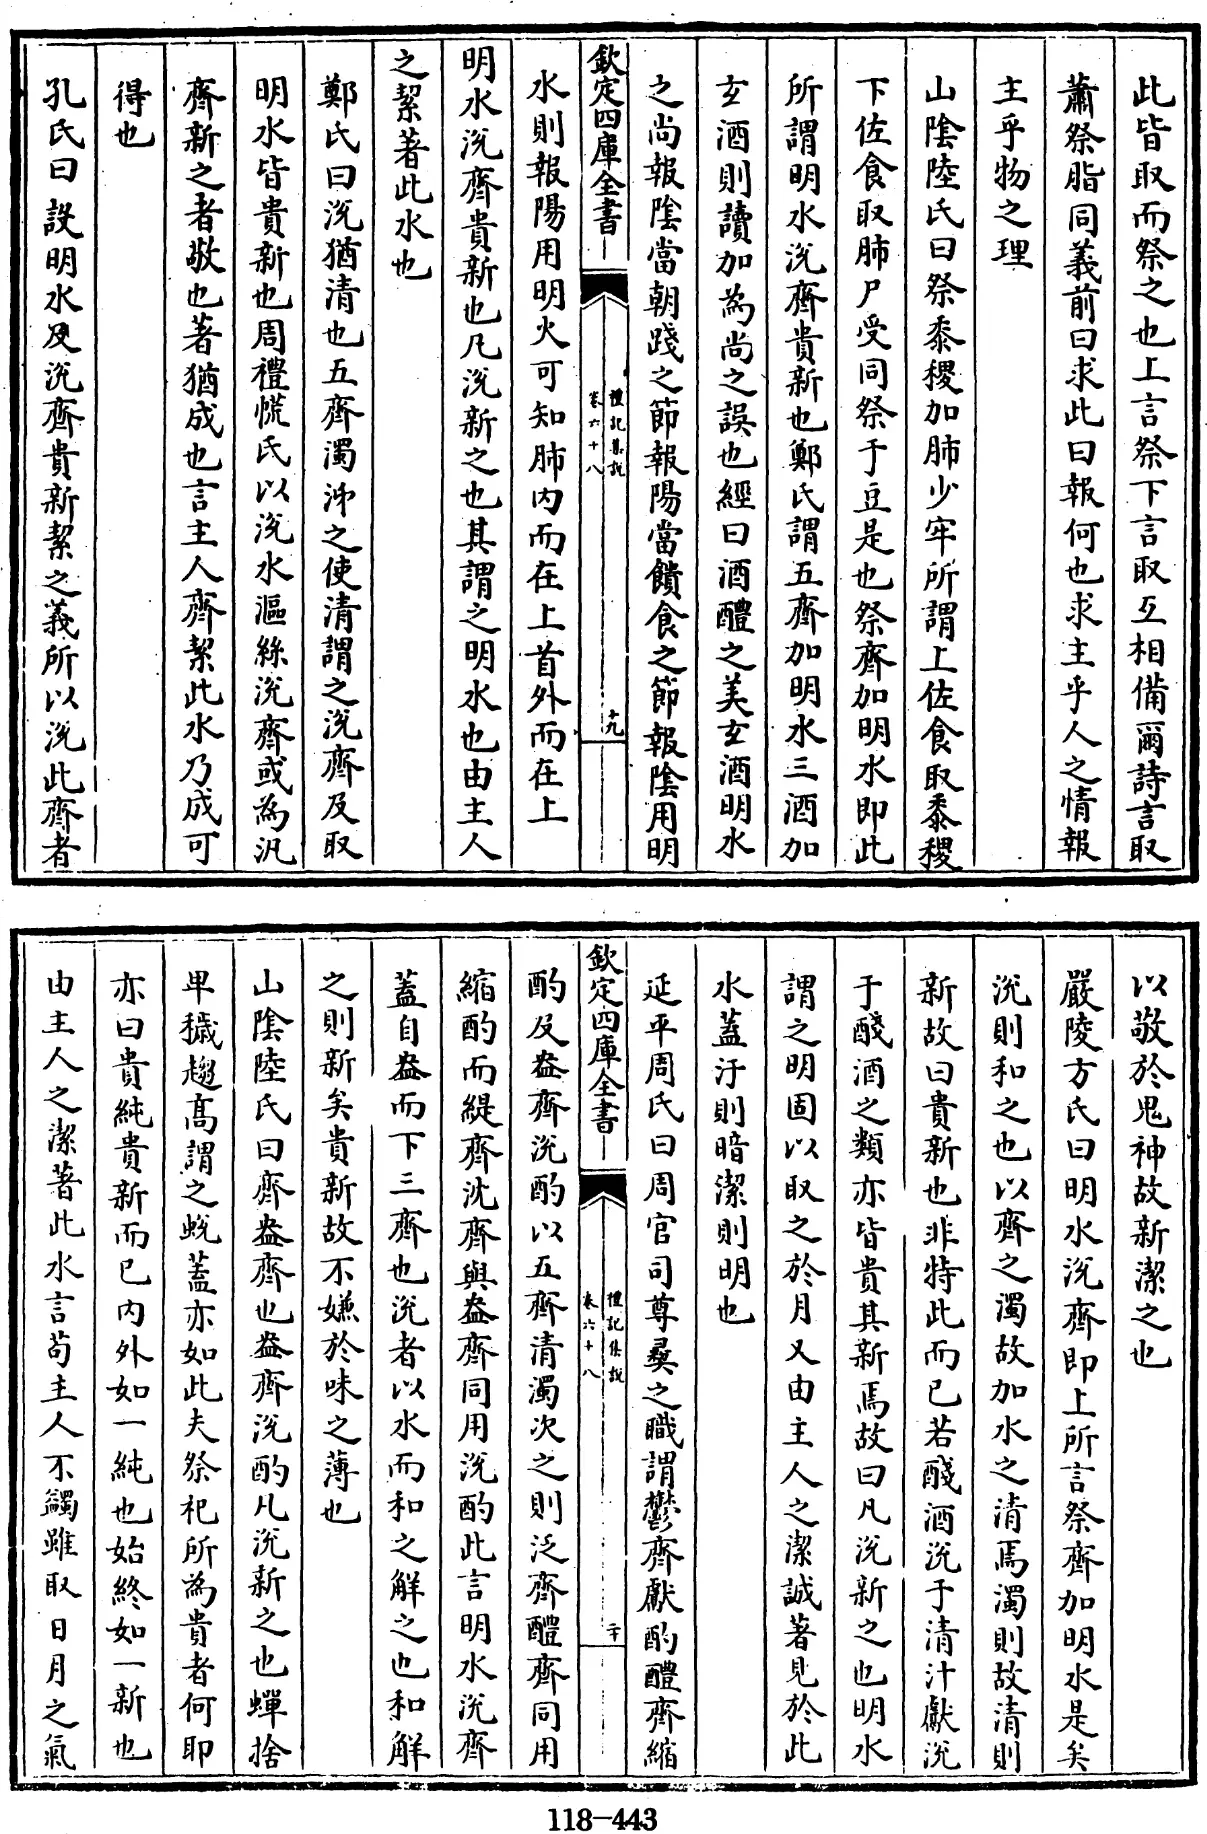 此皆取而祭之也上言祭下言取互相備爾詩言取
蕭祭脂同義前曰求此曰報何也求主乎人之情報
主乎物之理
山陰陸氏曰祭黍稷加肺少牢所謂上佐食取黍稷
下佐食取肺尸受同祭于豆是也祭齊加明水即此
所謂明水涗齊貴新也鄭氏謂五齊加明水三酒加
玄酒則讀加為尚之誤也經曰酒醴之美玄酒明水
之尚報陰當朝踐之節報陽當饋食之節報陰用明
欽定四庫全書
禮記集說
卷六十八
十九
水則報陽用明火可知肺内而在上首外而在上
明水涗齊貴新也凡涗新之也其謂之明水也由主人
之絜著此水也
鄭氏曰涗猶清也五齊濁泲之使清謂之涗齊及取
明水皆貴新也周禮㡆氏以涗水漚絲涗齊或為汎
齊新之者敬也著猶成也言主人齊絜此水乃成可
得也
孔氏曰設明水及涗齊貴新絜之義所以涗此齊者
以敬於鬼神故新潔之也
嚴陵方氏曰明水涗齊即上所言祭齊加明水是矣
涗則和之也以齊之濁故加水之清焉濁則故清則
新故曰貴新也非特此而已若醆酒涗于清汁獻涗
于醆酒之類亦皆貴其新焉故曰凡涗新之也明水
謂之明固以取之於月又由主人之潔誠著見於此
水蓋汙則暗潔則明也
延平周氏曰周官司尊彞之職謂鬱齊獻酌醴齊縮
欽定四庫全書
禮記集說
卷六十八
二十
酌及盎齊涗酌以五齊清濁次之則泛齊醴齊同用
縮酌而緹齊沈齊與盎齊同用涗酌此言明水涗齊
蓋自盎而下三齊也涗者以水而和之解之也和解
之則新矣貴新故不嫌於味之薄也
山陰陸氏曰齊盎齊也盎齊涗酌凡涗新之也蟬捨
卑穢趨髙謂之蛻蓋亦如此夫祭祀所為貴者何即
亦曰貴純貴新而已内外如一純也始終如一新也
由主人之潔著此水言苟主人不蠲雖取日月之氣
118-443